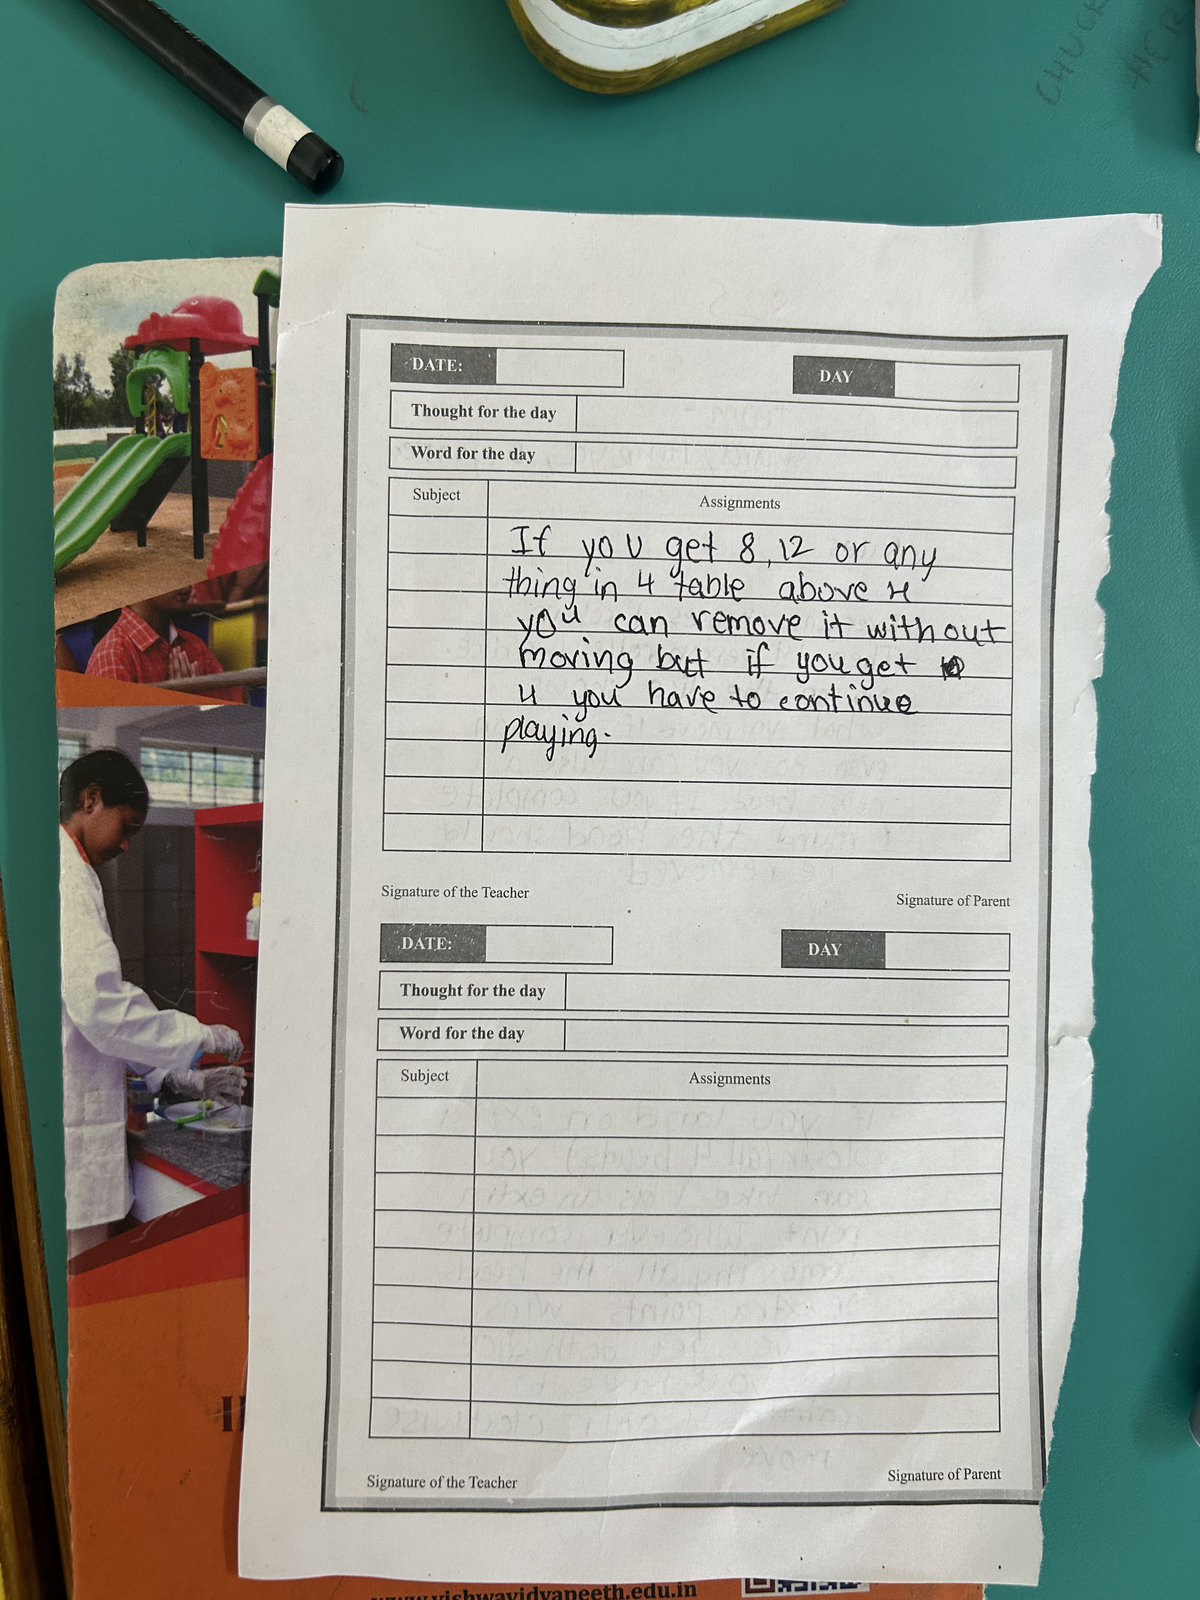 CHUCK
DATE:
DAY
Thought for the day
Word for the day
Subject Assignments
If you get 8,12 or any
thing in 4 table above 4
you can remove it without
moving but if you get
4 you have to continue
playing.
Signature of the Teacher
Signature of Parent
DATE:
DAY
Thought for the day
Word for the day
Subject Assignments
Signature of the Teacher
Signature of Parent
www.vishwavidyapeeth.edu.in